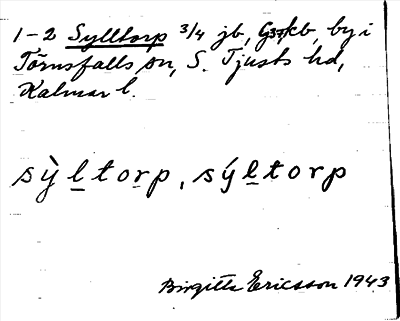 1-2 Sylltorp 3/4 jb, G37kb, by i
Törnsfalls sn, S. Tjusts hd,
Kalmar l.
sỳl̲tor̲p, sýl̲torp
Birgitta Ericsson 1943